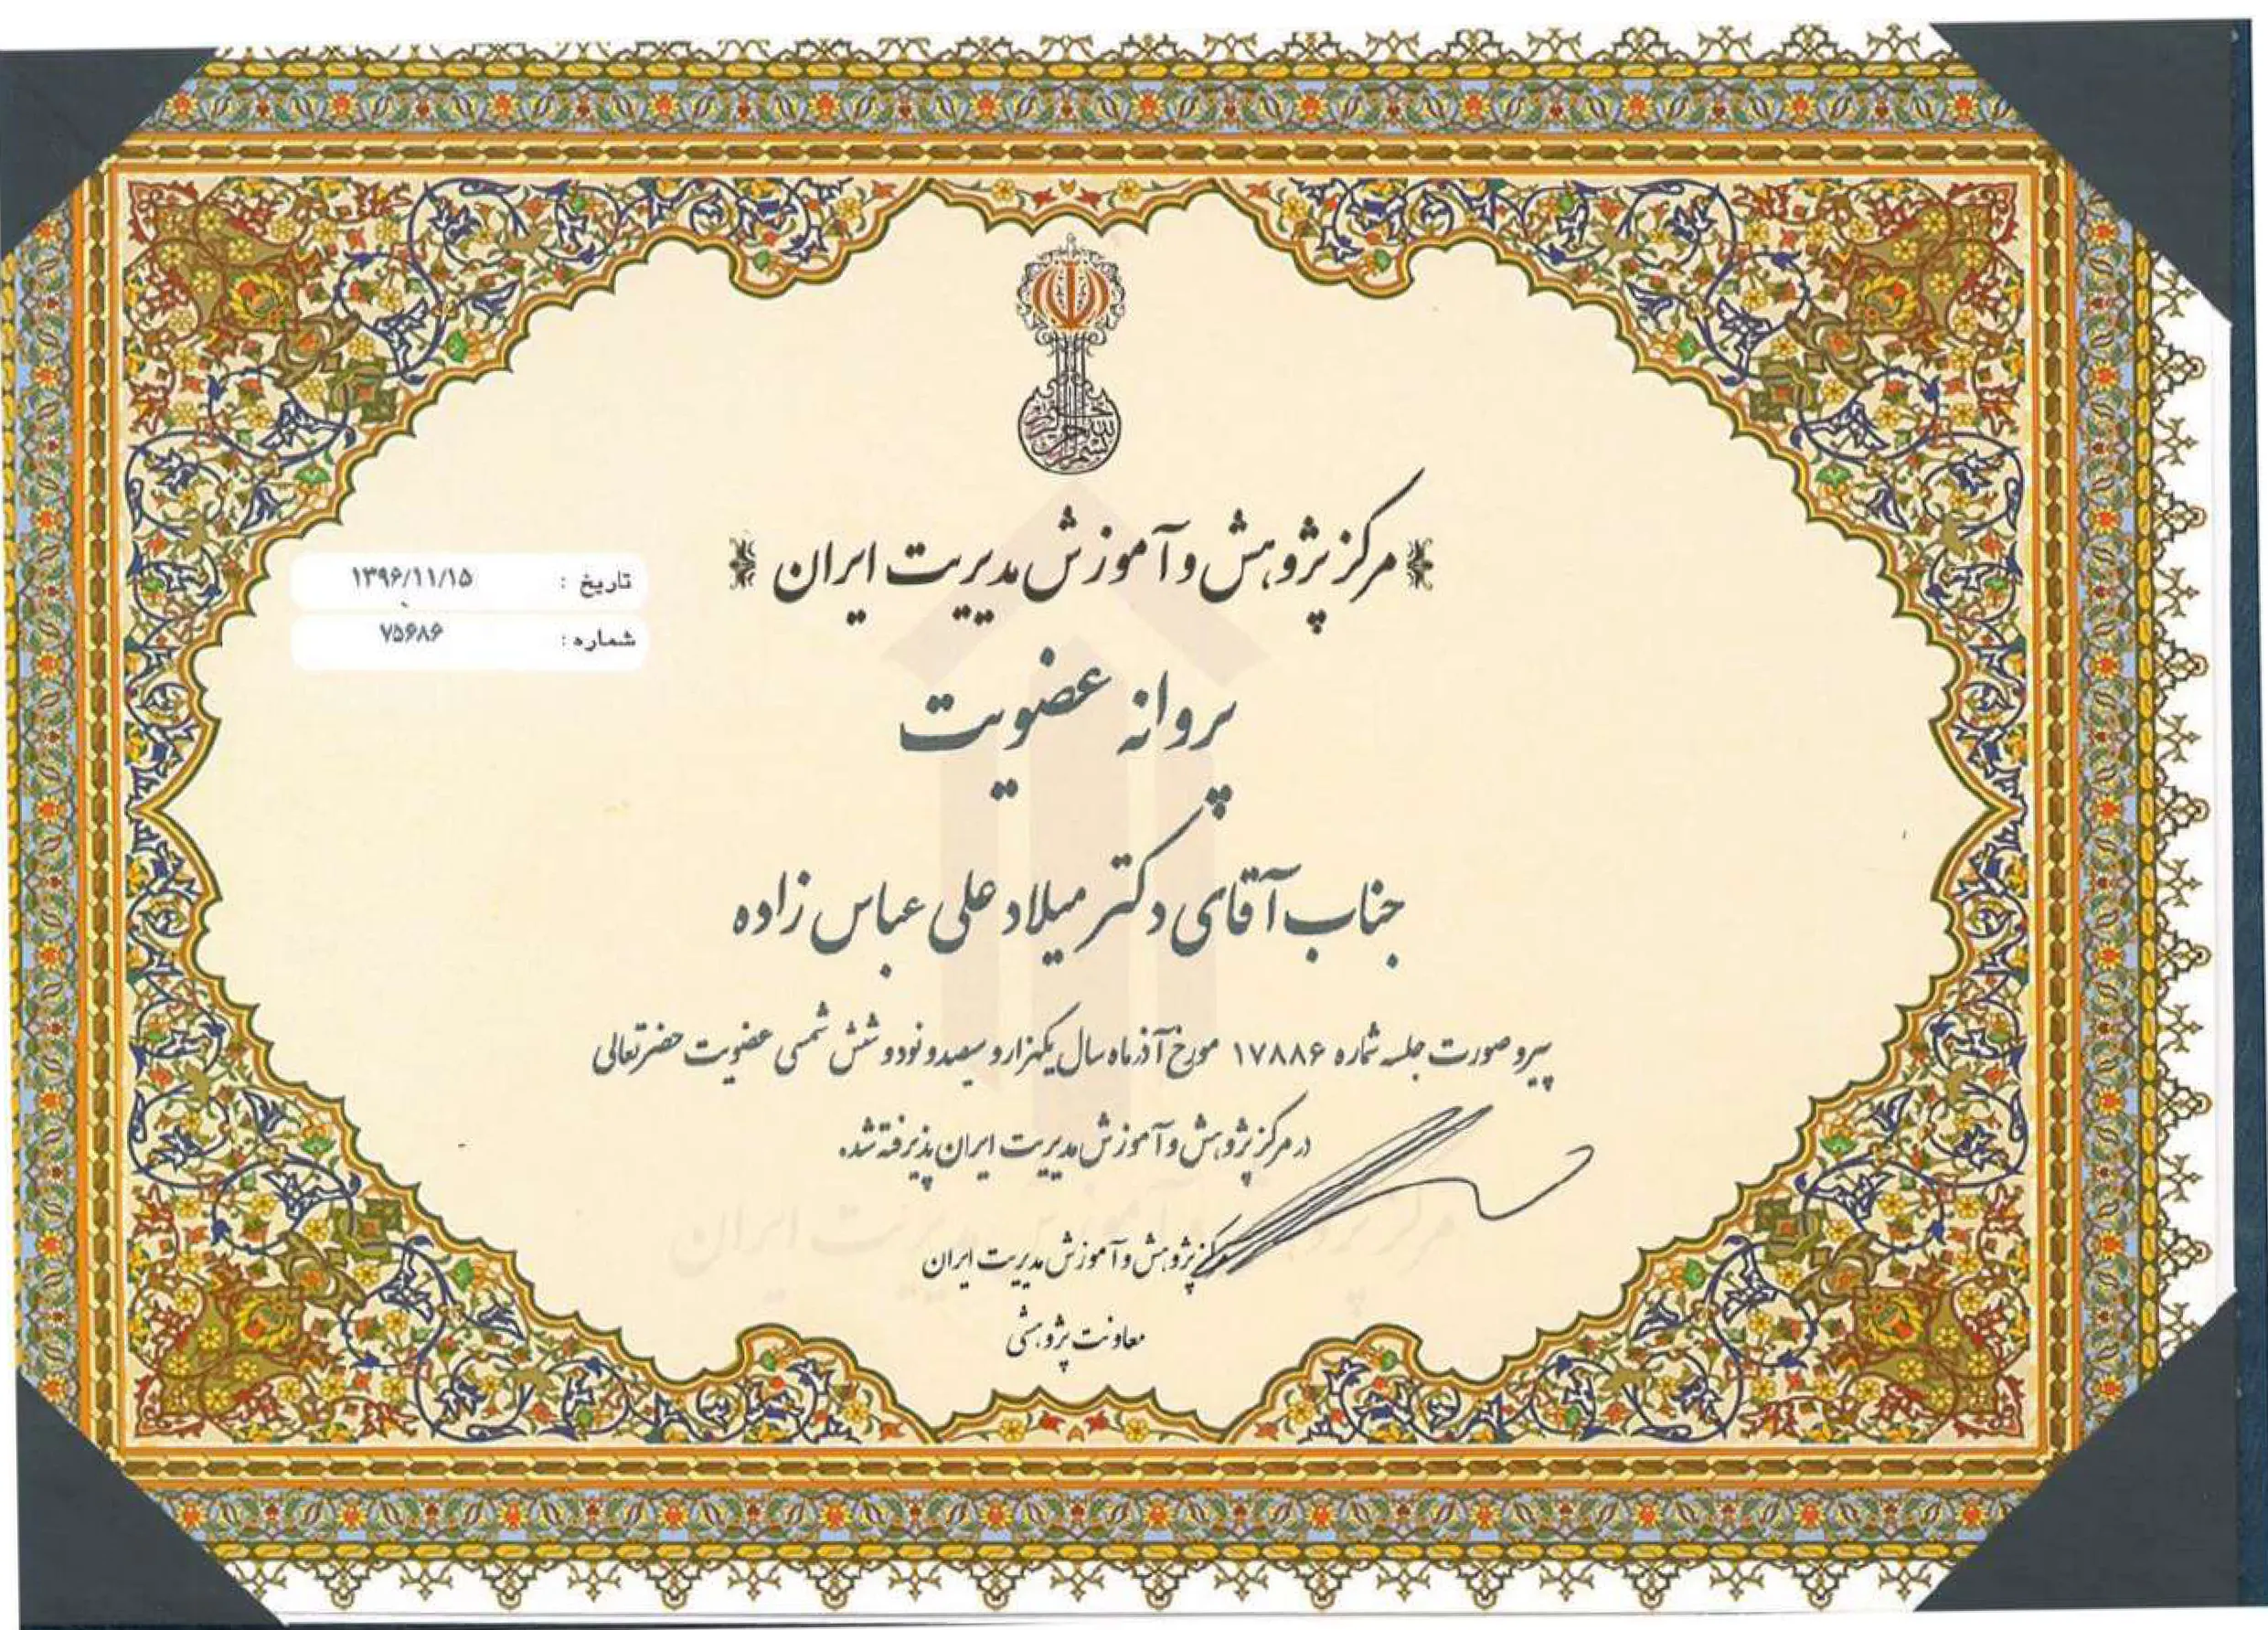 بسم الله الرحمن الرحیم
مرکز پژوهش و آموزش مدیریت ایران
تاریخ : ۱۳۹۶/۱۱/۱۵
شماره : ۷۵۶۸۶
پروانه عضویت
جناب آقای دکتر میلاد علی عباس زاده
پیرو صورت جلسه شماره ۱۷۸۸۶ مورخ آذرماه سال یکهزار و سیصد و نود و شش شمسی عضویت حضرتعالی
در مرکز پژوهش و آموزش مدیریت ایران پذیرفته شد.
مرکز پژوهش و آموزش مدیریت ایران
مرکز پژوهش و آموزش مدیریت ایران
معاونت پژوهشی